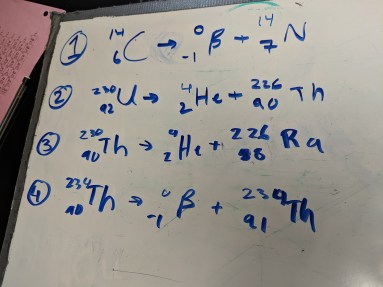 ① ¹⁴₆C → ⁰₋₁β + ¹⁴₇N
② ²³⁰₉₂U → ⁴₂He + ²²⁶₉₀Th
③ ²³⁰₉₀Th → ⁴₂He + ²²⁶₈₈Ra
④ ²³⁴₉₀Th → ⁰₋₁β + ²³⁴₉₁Th